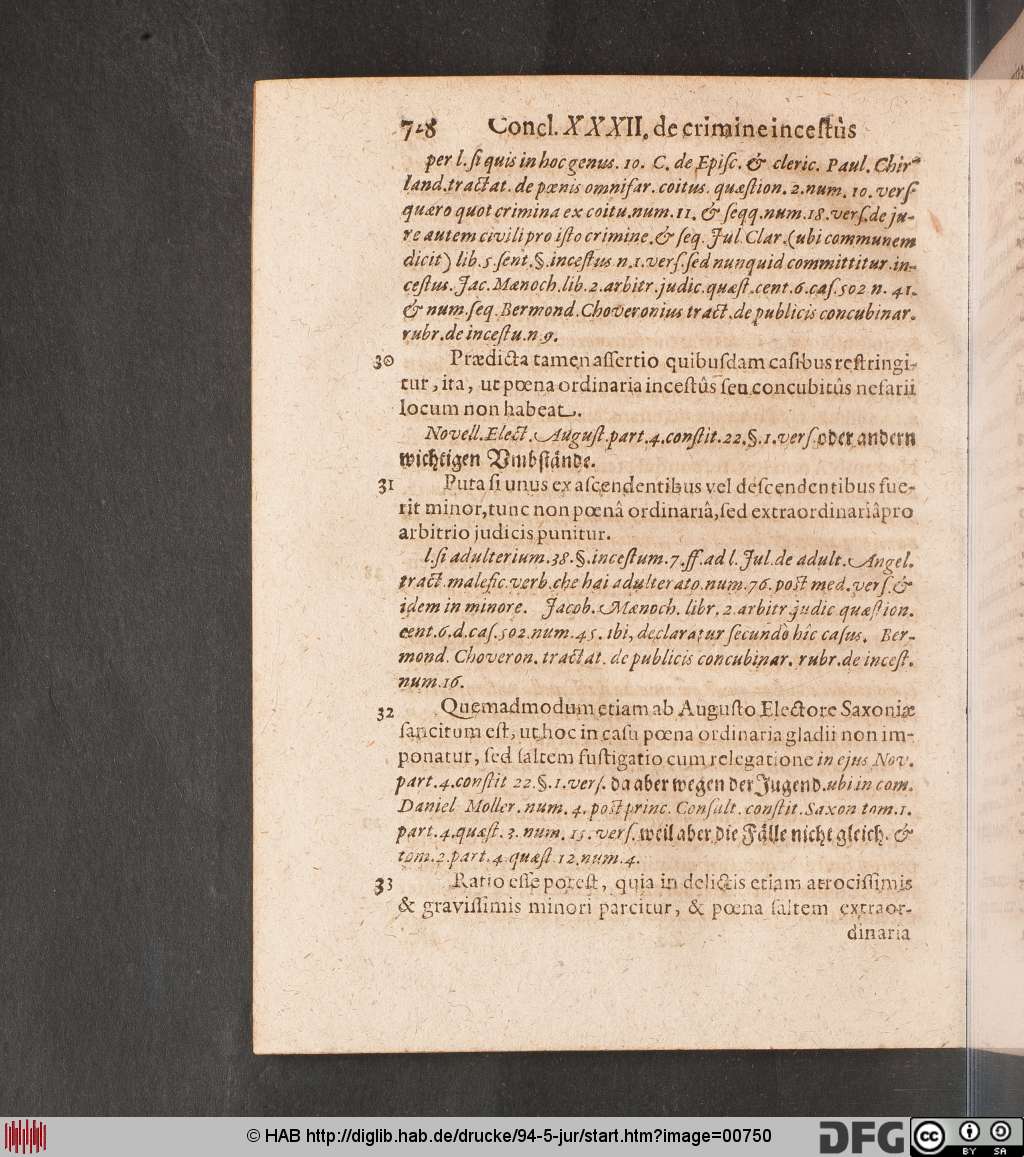 728 Concl. XXXII. de crimine incestûs
per l. si quis in hoc genus. 10. C. de Episc. & cleric. Paul. Chir-
land. tractat. de pœnis omnifar. coitus. quæstion. 2. num. 10. vers.
quæro quot crimina ex coitu. num. 11. & seqq. num. 18. vers. de ju-
re autem civili pro isto crimine. & seq. Jul. Clar. (ubi communem
dicit) lib. 5. sent. §. incestus n. 1. vers. sed nunquid committitur in-
cestus. Jac. Mænoch. lib. 2. arbitr. judic. quæst. cent. 6. cas. 502 n. 41.
& num. seq. Bermond. Choveronius tract. de publicis concubinar.
rubr. de incestu. n 9.
30 Prædicta tamen assertio quibusdam casibus restringi-
tur, ita, ut pœna ordinaria incestûs seu concubitûs nefarii
locum non habeat.
Novell. Elect. August. part. 4. constit. 22. §. 1. vers. oder andern
wichtigen Vmbstände.
31 Puta si unus ex ascendentibus vel descendentibus fue-
rit minor, tunc non pœnâ ordinariâ, sed extraordinariâ pro
arbitrio judicis punitur.
l. si adulterium. 38. §. incestum. 7. ff. ad l. Jul. de adult. Angel.
tract. malefic. verb. che hai adulterato. num. 76. post med. vers. &
idem in minore. Jacob. Mænoch. libr. 2. arbitr. judic quæstion.
cent. 6. d. cas. 502. num. 45. ibi, declaratur secundò hîc casus. Ber-
mond. Choveron. tractat. de publicis concubinar. rubr. de incest.
num. 16.
32 Quemadmodum etiam ab Augusto Electore Saxoniæ
sancitum est, ut hoc in casu pœna ordinaria gladii non im-
ponatur, sed saltem fustigatio cum relegatione in ejus Nov.
part. 4. constit 22. §. 1. vers. da aber wegen der Jugend. ubi in com.
Daniel Moller. num. 4. post princ. Consult. constit. Saxon tom. 1.
part. 4. quæst. 3. num. 15. vers. weil aber die Fälle nicht gleich. &
tom. 2. part. 4. quæst. 12. num. 4.
33 Ratio esse potest, quia in delictis etiam atrocissimis
& gravissimis minori parcitur, & pœna saltem extraor-
dinaria
© HAB http://diglib.hab.de/drucke/94-5-jur/start.htm?image=00750
DFG cc BY SA